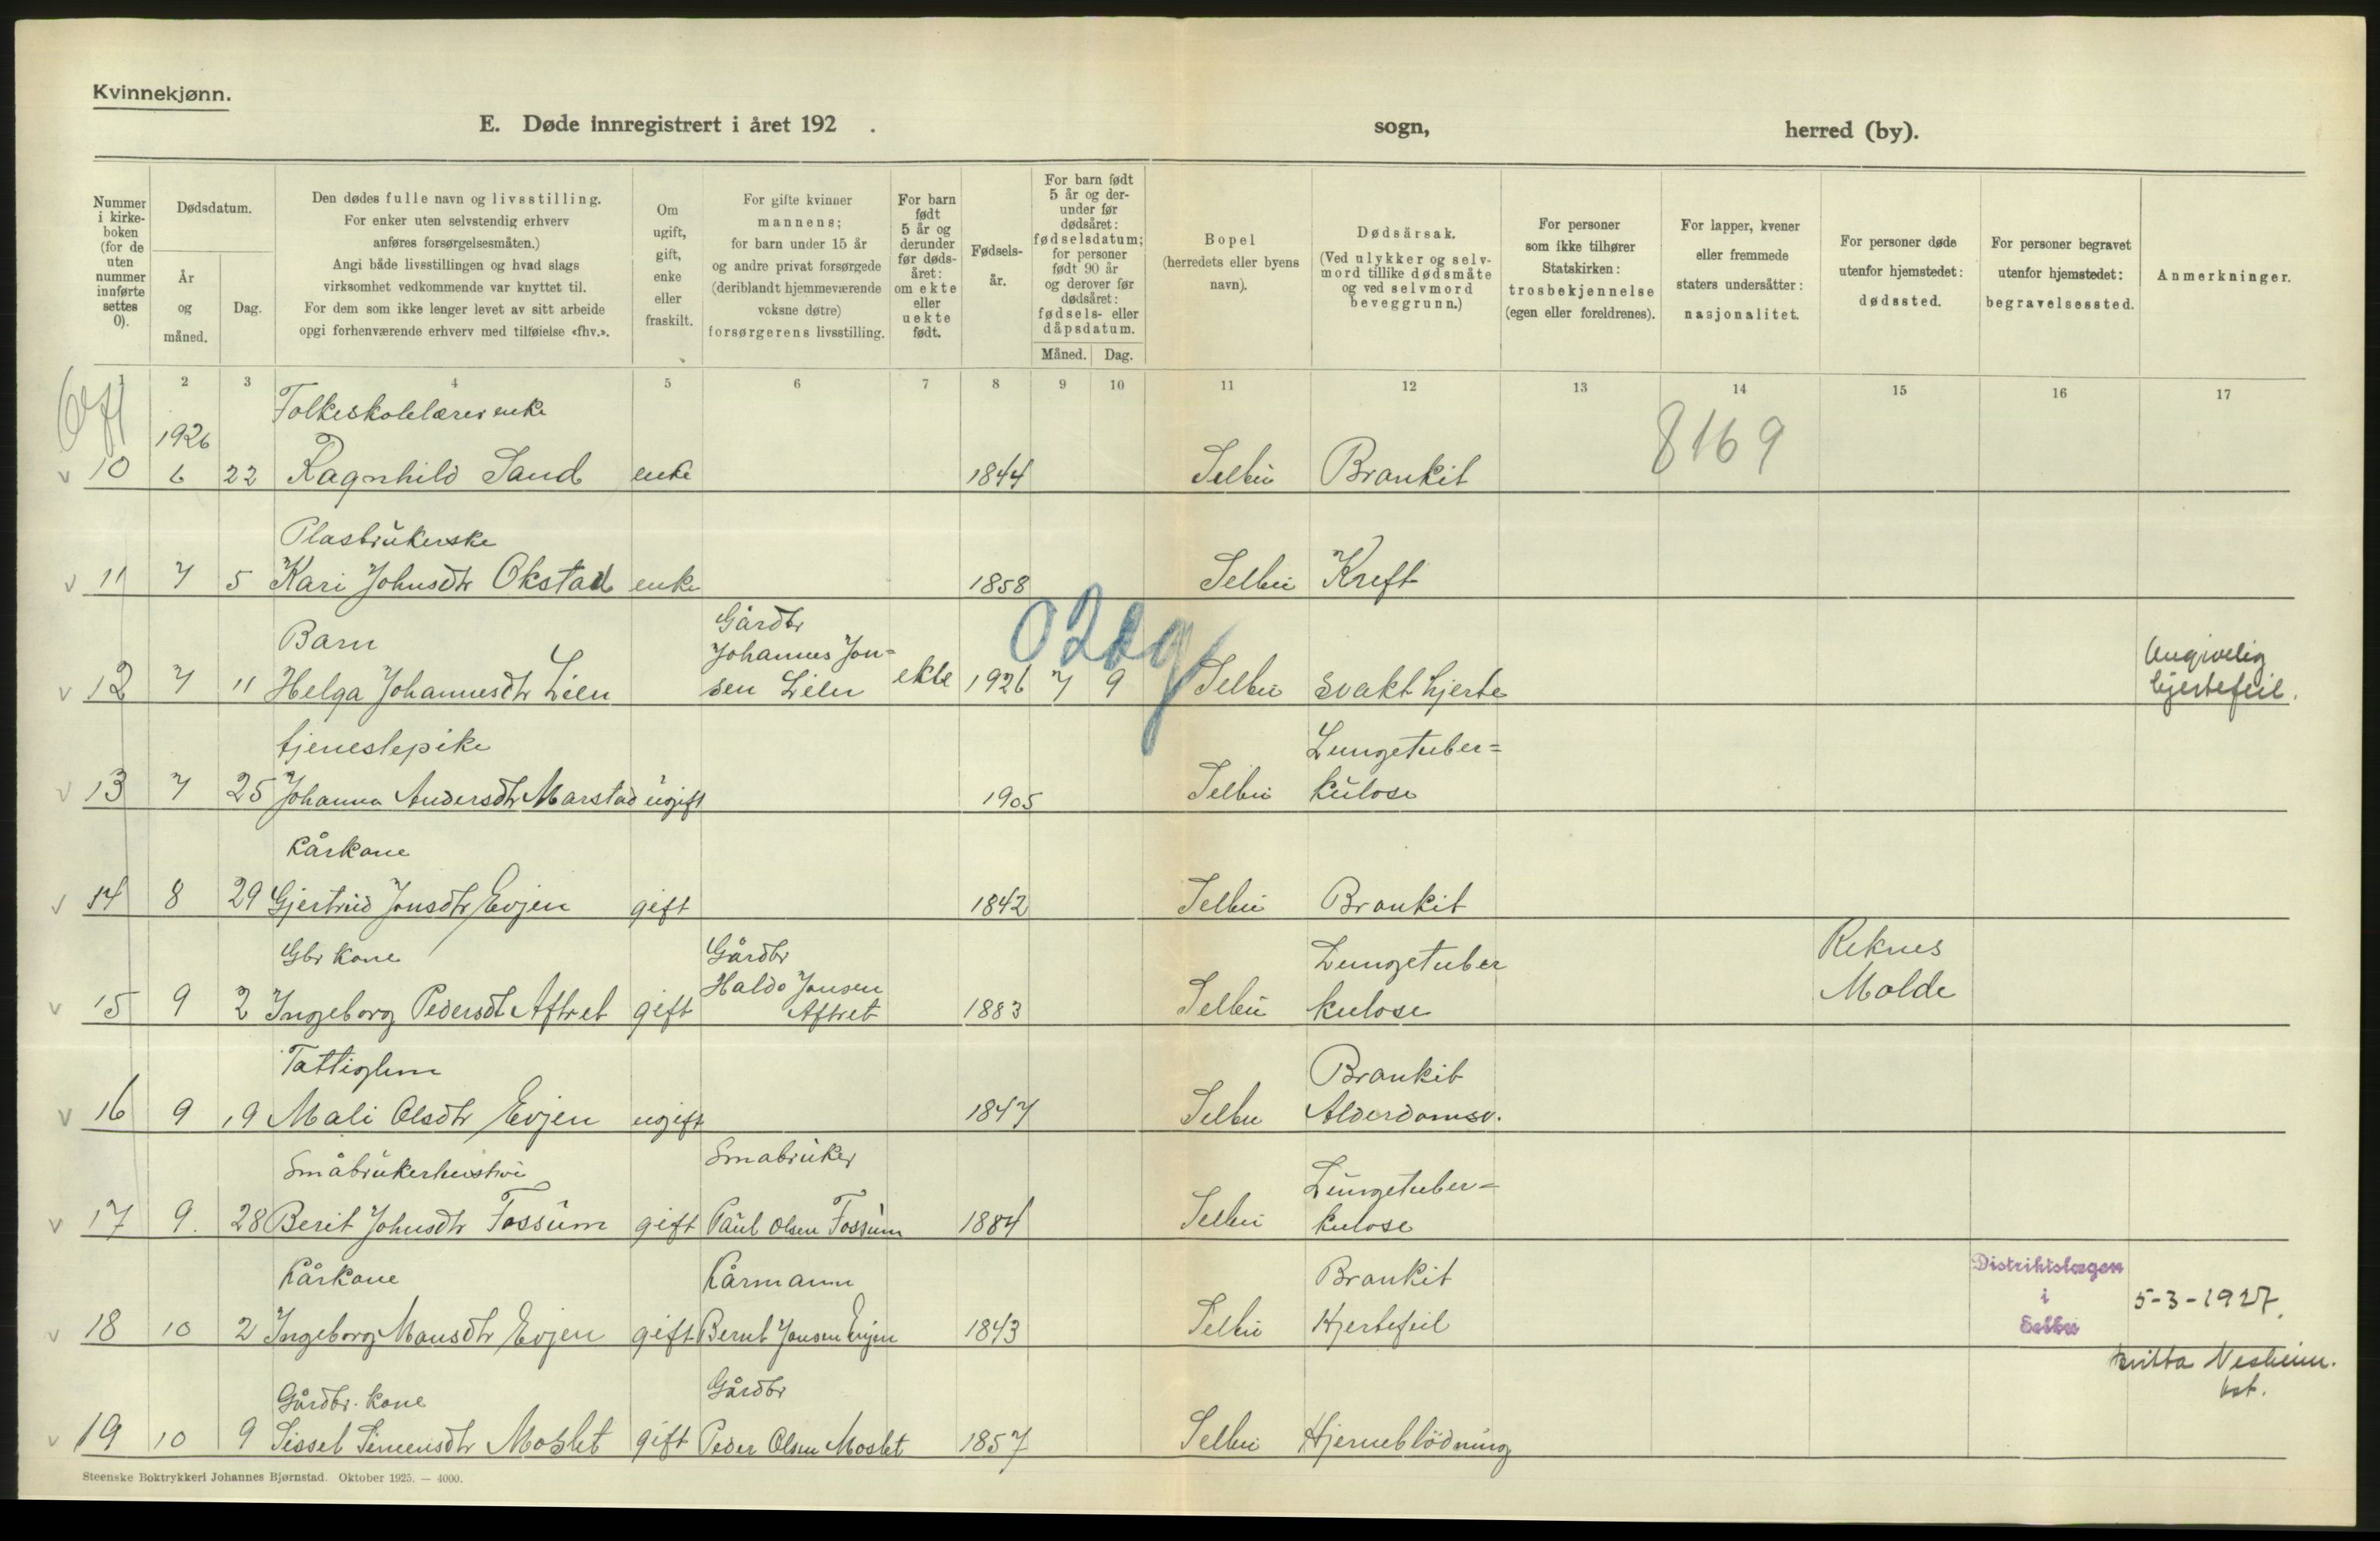 Kvinnekjønn.
E. Døde innregistrert i året 192 . sogn, herred (by).
Nummer i kirke-boken (for de uten nummer innførte settes 0).
Dødsdatum.
År og måned.
Dag.
Den dødes fulle navn og livsstilling.
For enker uten selvstendig erhverv
anføres forsørgelsesmåten.)
Angi både livsstillingen og hvad slags
virksomhet vedkommende var knyttet til.
For dem som ikke lenger levet av sitt arbeide
opgi forhenværende erhverv med tilføielse «fhv.».
Om ugift, gift, enke eller fraskilt.
For gifte kvinner
mannens;
for barn under 15 år
og andre privat forsørgede
(deriblandt hjemmeværende
voksne døtre)
forsørgerens livsstilling.
For barn født 5 år og derunder før døds-året: om ekte eller uekte født.
Fødsels-år.
For barn født 5 år og der-under før dødsåret: fødselsdatum; for personer født 90 år og derover før dødsåret: fødsels- eller dåpsdatum.
Måned. Dag.
Bopel
(herredets eller byens
navn).
Dødsårsak.
(Ved ulykker og selv-
mord tillike dødsmåte
og ved selvmord
beveggrunn.)
For personer
som ikke tilhører
Statskirken:
trosbekjennelse
(egen eller foreldrenes).
For lapper, kvener
eller fremmede
staters undersåtter:
nasjonalitet.
For personer døde
utenfor hjemstedet:
dødssted.
For personer begravet
utenfor hjemstedet:
begravelsessted.
Anmerkninger.
1 2 3 4 5 6 7 8 9 10 11 12 13 14 15 16 17
Folkeskolelærerenke
1926
8169
v 10 6 22 Ragnhild Sand enke 1844 Selbu Bronkit
Plasbrukerske
v 11 7 5 Kari Johnsdtr Okstad enke 1858 Selbu Kreft
Barn Gårdbr
Johannes Jon-
v 12 7 11 Helga Johannesdtr Lien sen Lien ekte 1926 7 9 Selbu svakt hjerte
Angivelig
hjertefeil.
tjenestepike Lungetuber=
v 13 7 25 Johanna Andersdtr Marstad ugift 1905 Selbu kulose
Kårkone
v 14 8 29 Gjertrud Jonsdtr Evjen gift 1842 Selbu Bronkit
Gbr kone Gårdbr Lungetuber Reknes
Haldo Jonsen
v 15 9 2 Ingeborg Pedersdt Aftret gift Aftret 1883 Selbu kulose Molde
Fattiglem Bronkit
v 16 9 19 Mali Olsdtr Evjen ugift 1847 Selbu Alderdomsv.
Småbrukerhustru Småbruker Lungetuber=
v 17 9. 28 Berit Johnsdtr Fossum gift Paul Olsen Fossum 1884 Selbu kulose
Kårkone Kårmann Bronkit
v 18 10 2 Ingeborg Monsdtr Evjen gift Bernt Jonsen Evjen 1843 Selbu Hjertefeil
Distriktslægen
i
Selbu
5-3-1927.
Nesheim.
Gårdbr. kone Gårdbr
v 19 10 9 Sissel Simensdtr Moslet gift Peder Olsen Moslet 1857 Selbu Hjerneblødning
Steenske Boktrykkeri Johannes Bjørnstad. Oktober 1925. — 4000.